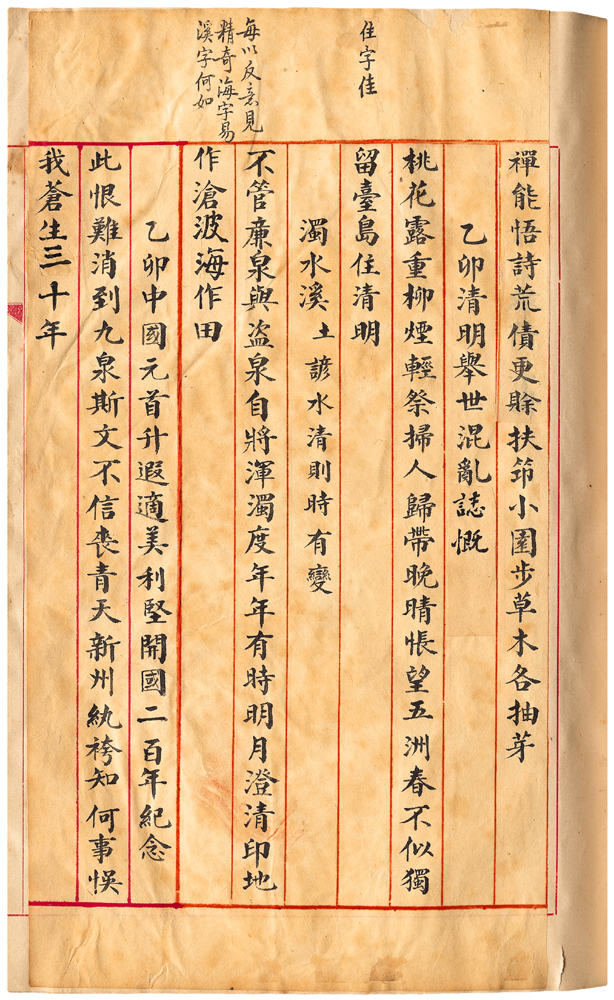 住字佳
每以反意見
精奇海字易
溪字何如
禪能悟詩荒債更賒扶筇小園步草木各抽芽
乙卯清明舉世混亂誌慨
桃花露重柳煙輕祭掃人歸帶晚晴悵望五洲春不似獨
留臺島住清明
濁水溪土諺水清則時有變
不管亷泉與盜泉自將渾濁度年年有時明月澄清印地
作滄波海作田
乙卯中國元首升遐適美利堅開國二百年紀念
此恨難消到九泉斯文不信喪青天新州紈袴知何事悞
我蒼生三十年